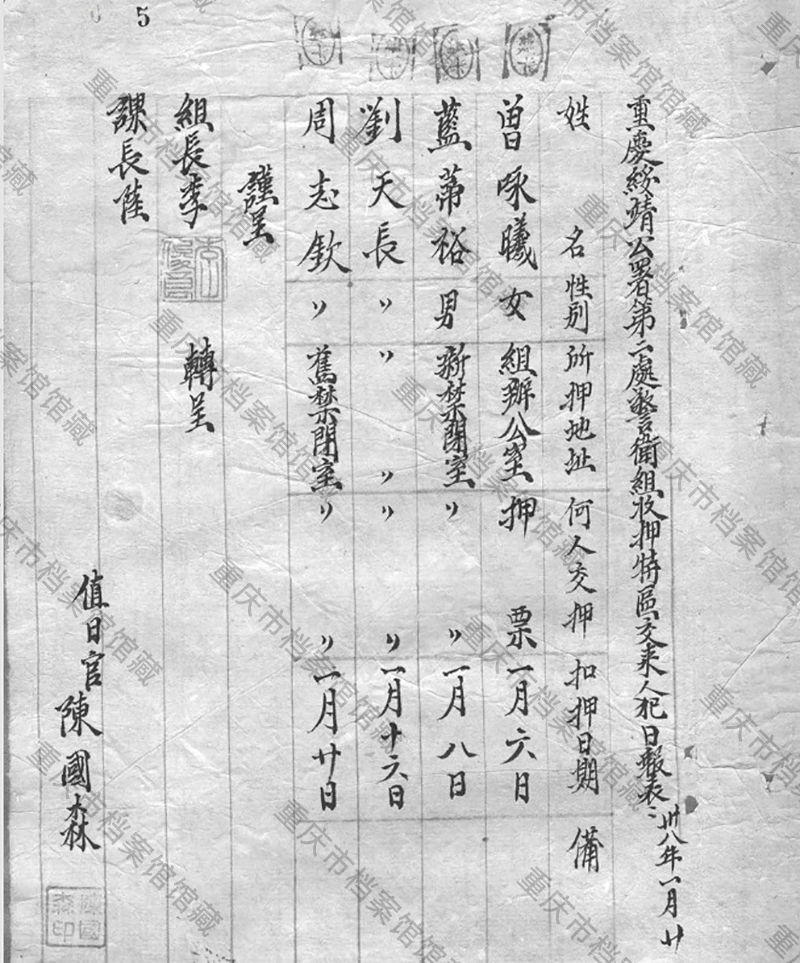 5
重慶綏靖公署第二處警衛組收押特區交来人犯日報表 卅八年一月廿
姓名 性別 所押地址 何人交押 扣押日期 備
曾咏曦 女 組辦公室 押票 一月六日
藍蒂裕 男 新禁閉室 〃 〃 一月八日
劉天長 〃 〃 〃 〃 〃 一月十六日
周志欽 〃 舊禁閉室 〃 〃 一月廿日
謹呈
組長李 轉呈
課長陸
值日官 陳國森
陳國森印
重庆市档案馆馆藏